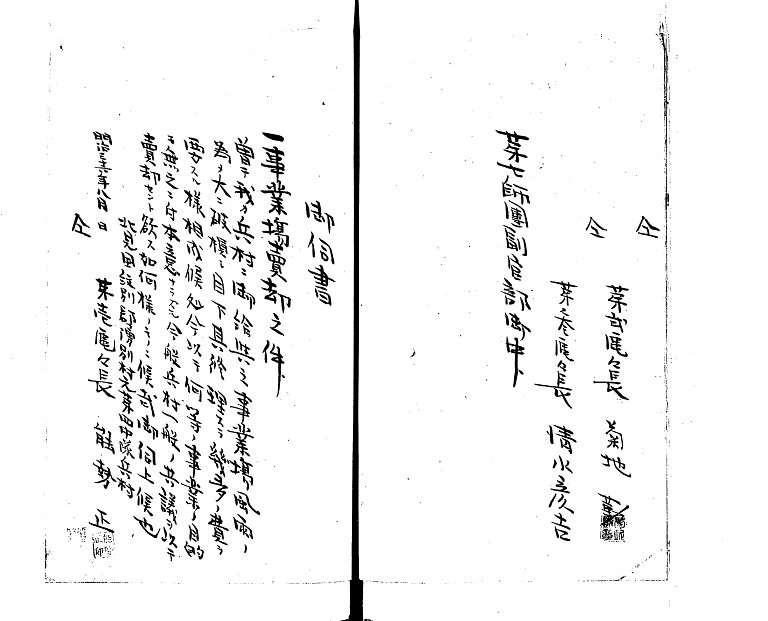 御伺書
一事業場賣却之件
曽テ我カ兵村ニ御給與之事業場風雨ノ
為メ大ニ破損シ目下其修理スラ幾多ノ費ヲ
要スル様相成候処今以テ何等ノ事業ノ目的
モ無之ニ付本意ナラズモ今般兵村一般ノ共議ヲ以テ
賣却セント欲ス如何様ノモノニ候哉御伺上候也
北見国紋別郡湧別村元第四中隊兵村
明治三十六年八月 日
第壱區々長 能勢 正
仝
仝 第弐區々長 菊地
仝 第参區々長 清水彦吉
第七師團副官部御中